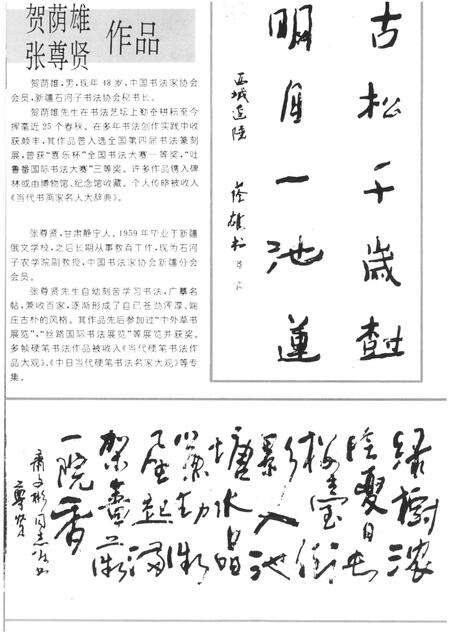 贺荫雄
张尊贤 作品
贺荫雄,男,现年48岁,中国书法家协会
会员,新疆石河子书法协会秘书长。
贺荫雄先生在书法艺坛上勤奋耕耘至今
挥毫近25个春秋。在多年书法创作实践中收
获颇丰,其作品曾入选全国第四届书法篆刻
展,曾获“喜乐杯”全国书法大赛一等奖,“吐
鲁番国际书法大赛”三等奖。许多作品镌入碑
林或由博物馆、纪念馆收藏。个人传略被收入
《当代书画家名人大辞典》。
张尊贤,甘肃静宁人。1959年毕业于新疆
俄文学校,之后长期从事教育工作,现为石河
子农学院副教授,中国书法家协会新疆分会
会员。
张尊贤先生自幼刻苦学习书法,广摹名
帖,兼收百家,逐渐形成了自己苍劲浑厚、端
庄古朴的风格。其作品先后参加过“中外草书
展览”,“丝路国际书法展览”等展览并获奖。
多帧硬笔书法作品被收入《当代硬笔书法作品
大观》、《中日当代硬笔书法名家大观》等专
集。
古松千歲
明月一池蓮
荫雄书
綠樹濃
陰夏日長
樓臺倒
影入池
塘水晶
簾動微
風起滿
架薔薇
一院香
同志
尊贤